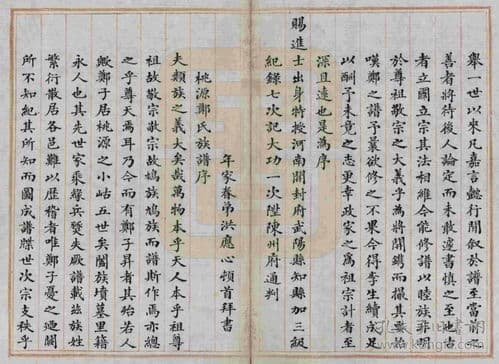 舉一世以來凡嘉言懿行閒叙於譜當前之
善者將待後人論定而未敢遽書慎之至也古
者立國立宗其法相維今能修譜以睦族非明
於尊祖敬宗之大義乎為將開鐫而撮其要始
嘆鄭之譜予曩欲修之不果今得李生續成足
以酬予未竟之志更幸政家之為祖宗計者至
深且遠也是為序
賜進士出身特授河南開封府武陽縣知縣加三級
紀錄七次記大功一次陞陳州府通判
年家眷弟洪應心頓首拜書
桃源鄭氏族譜序
夫類族之義大矣哉萬物本乎天人本乎祖尊
祖故敬宗敬宗故鳩族鳩族而譜斯作焉亦總
之乎尊天焉耳乃今而有鄭子昇者其殆若人
歟鄭子居桃源之小岵五世矣闔族墳墓里籍
永人也其先世家乘缘兵燹失厥譜載玆族姓
繁衍散居各邑難以歷稽者唯鄭子憂之迺闕
所不知紀其所知而圖成譜牒世次宗支秩乎